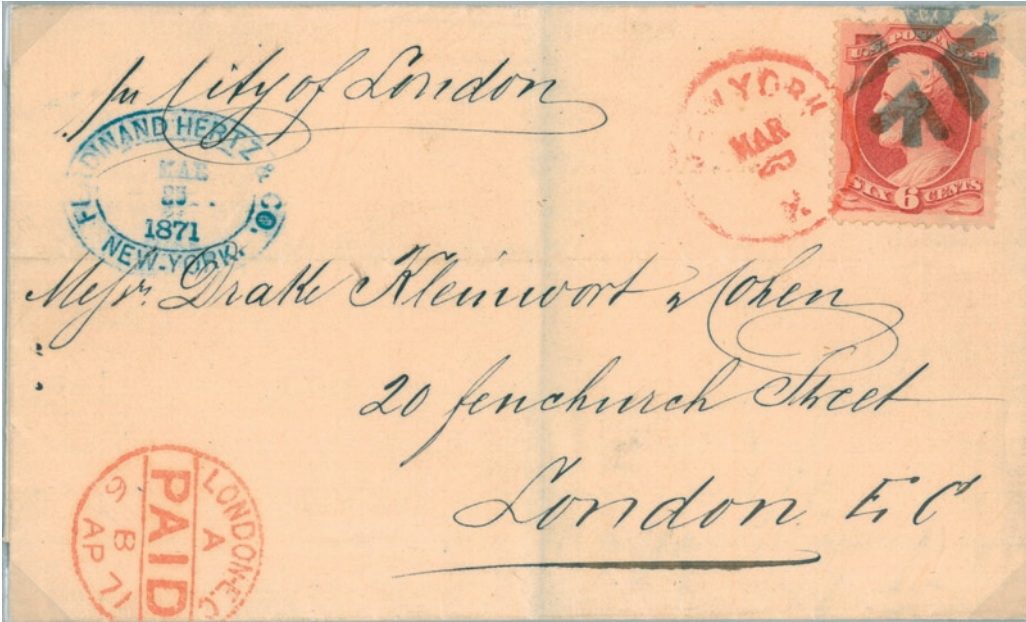 per City of London
FERDINAND HERTZ & CO.
MAR
25
1871
NEW-YORK.
NEW YORK
MAR
25
U.S. POSTAGE
SIX 6 CENTS
Messrs. Drake Kleinwort & Cohen
20 fenchurch Street
London E C
LONDON-E.C
A
PAID
B
AP 71